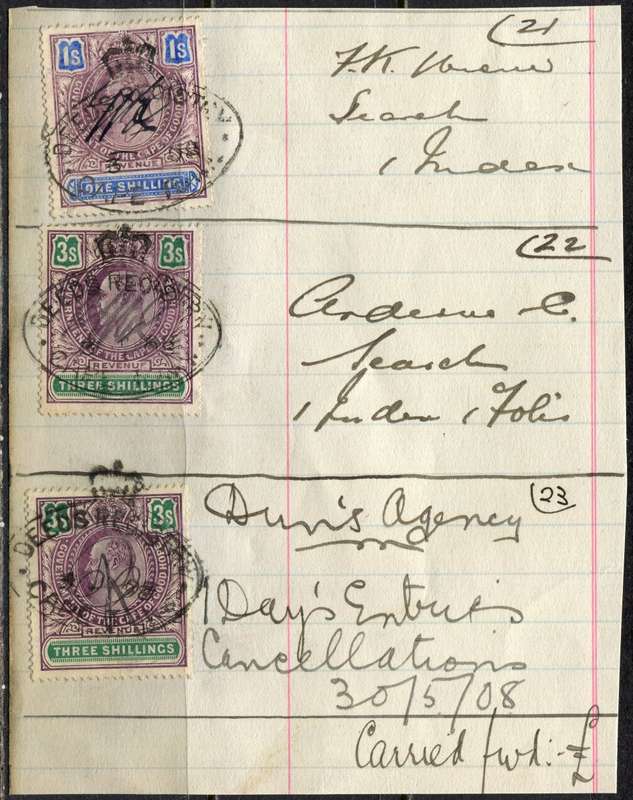 (21)
1s 1s
F.K.
Search
1 Index
REVENUE
ONE SHILLING
(22)
3s 3s
DEEDS REGISTRY
Search
1 Index 1 Folio
REVENUE
THREE SHILLINGS
(23)
Dun's Agency
3s 3s
DEEDS
GOVERNMENT OF THE CAPE OF GOOD HOPE
1 Day's Entries
REVENUE
THREE SHILLINGS
Cancellations
30/5/08
Carried fwd:- £